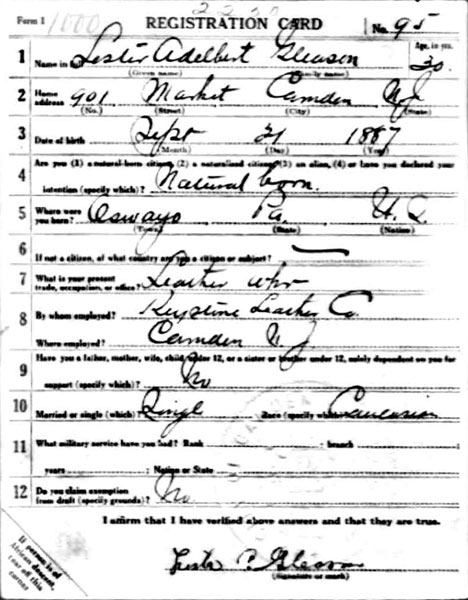 Form 1 REGISTRATION CARD No. 95
1 Name in full Lester Adelbert Gleason Age, in yrs. 30
(Given name) (Family name)
2 Home address 901 Market Camden N.J.
(No.) (Street) (City) (State)
3 Date of birth Sept 21 1887
(Month) (Day) (Year)
4 Are you (1) a natural-born citizen, (2) a naturalized citizen, (3) an alien, (4) or have you declared your
intention (specify which)? Natural born.
5 Where were you born? Oswayo Pa. U.S.
(Town) (State) (Nation)
6 If not a citizen, of what country are you a citizen or subject?
7 What is your present trade, occupation, or office? Leather wkr
8 By whom employed? Keystone Leather Co.
Where employed? Camden N J
9 Have you a father, mother, wife, child under 12, or a sister or brother under 12, solely dependent on you for
support (specify which)? No
10 Married or single (which)? Single Race (specify which)? Caucasian
11 What military service have you had? Rank ; branch
years ; Nation or State
12 Do you claim exemption from draft (specify grounds)? No.
I affirm that I have verified above answers and that they are true.
Lester A Gleason
(Signature or mark)
If person is of
African descent,
tear off this
corner